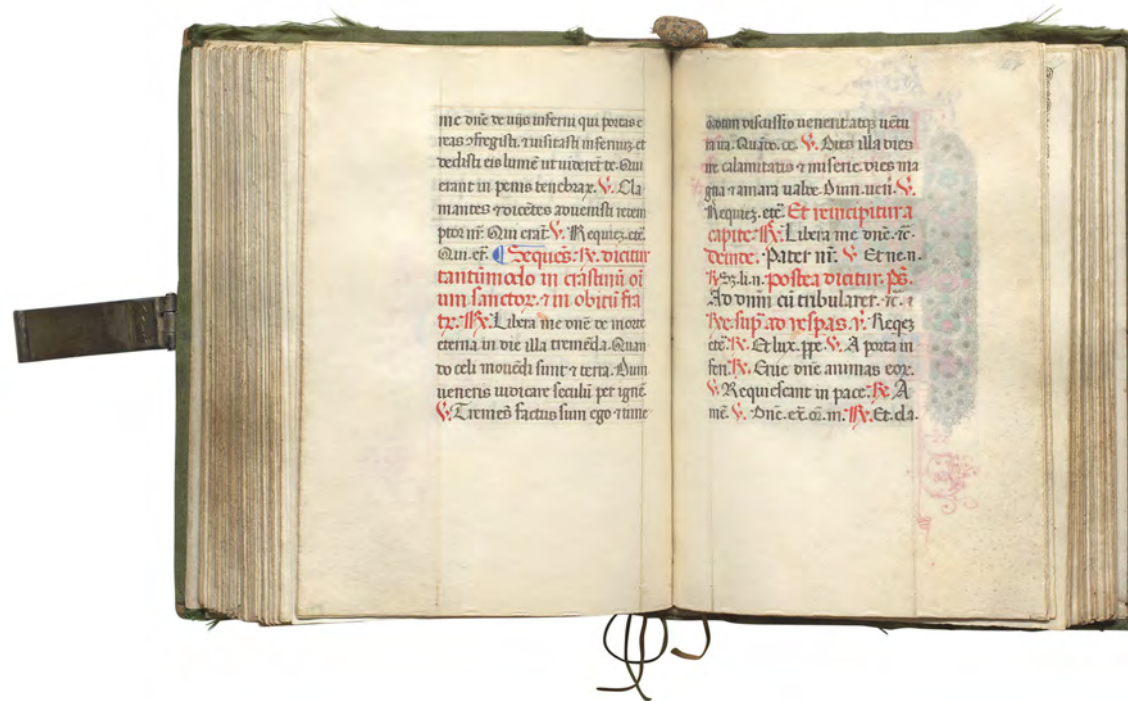 me dñe de uijs inferni qui portas e
reas ꝯfregisti. ⁊ uisitasti infernuꝫ. et
dedisti eis lumē ut uiderēt te. Qui
erant in penis tenebraꝝ. ℣. Cla
mantes ⁊ dicētes aduenisti redem
ptor nr̄. Qui erāt. ℣. Requiēꝫ. etē.
Qui. er̄. ¶ Sequēs. ℟. dicitur
tantūmodo in crastinū oī
um sanctoꝝ. ⁊ in obitū fra
tꝝ. ℟. Libera me dñe de morte
eterna in die illa tremēda. Quan
do celi mouēdi sunt ⁊ terra. Dum
ueneris iudicare seculū per ignē.
℣. Tremēs factus sum ego ⁊ time
discussio uenerit atqꝫ uētu
ra ira. Quādo. ce. ℣. Dies illa dies
ire calamitatis ⁊ miserie. dies ma
gna ⁊ amara ualde. Dum. uen̄. ℣.
Requiēꝫ. etē. Et reincipitur a
capite. ℟. Libera me dñe. ⁊c.
deinde. Pater nr̄. ℣. Et ne. n.
℟. Sꝫ. li. n. postea dicitur. ps̄.
Ad dn̄m cū tribularer. ⁊c. ⁊
℟e. sup̄. ad uesp̄as. ℣. Reqeꝫ
etē. ℟. Et lux. ppe. ℣. A porta in
feri. ℟. Erue dñe animas eoꝝ.
℣. Requiescant in pace. ℟. A
mē. ℣. Dñe. ex̄. or̄. m. ℟. Et cla.